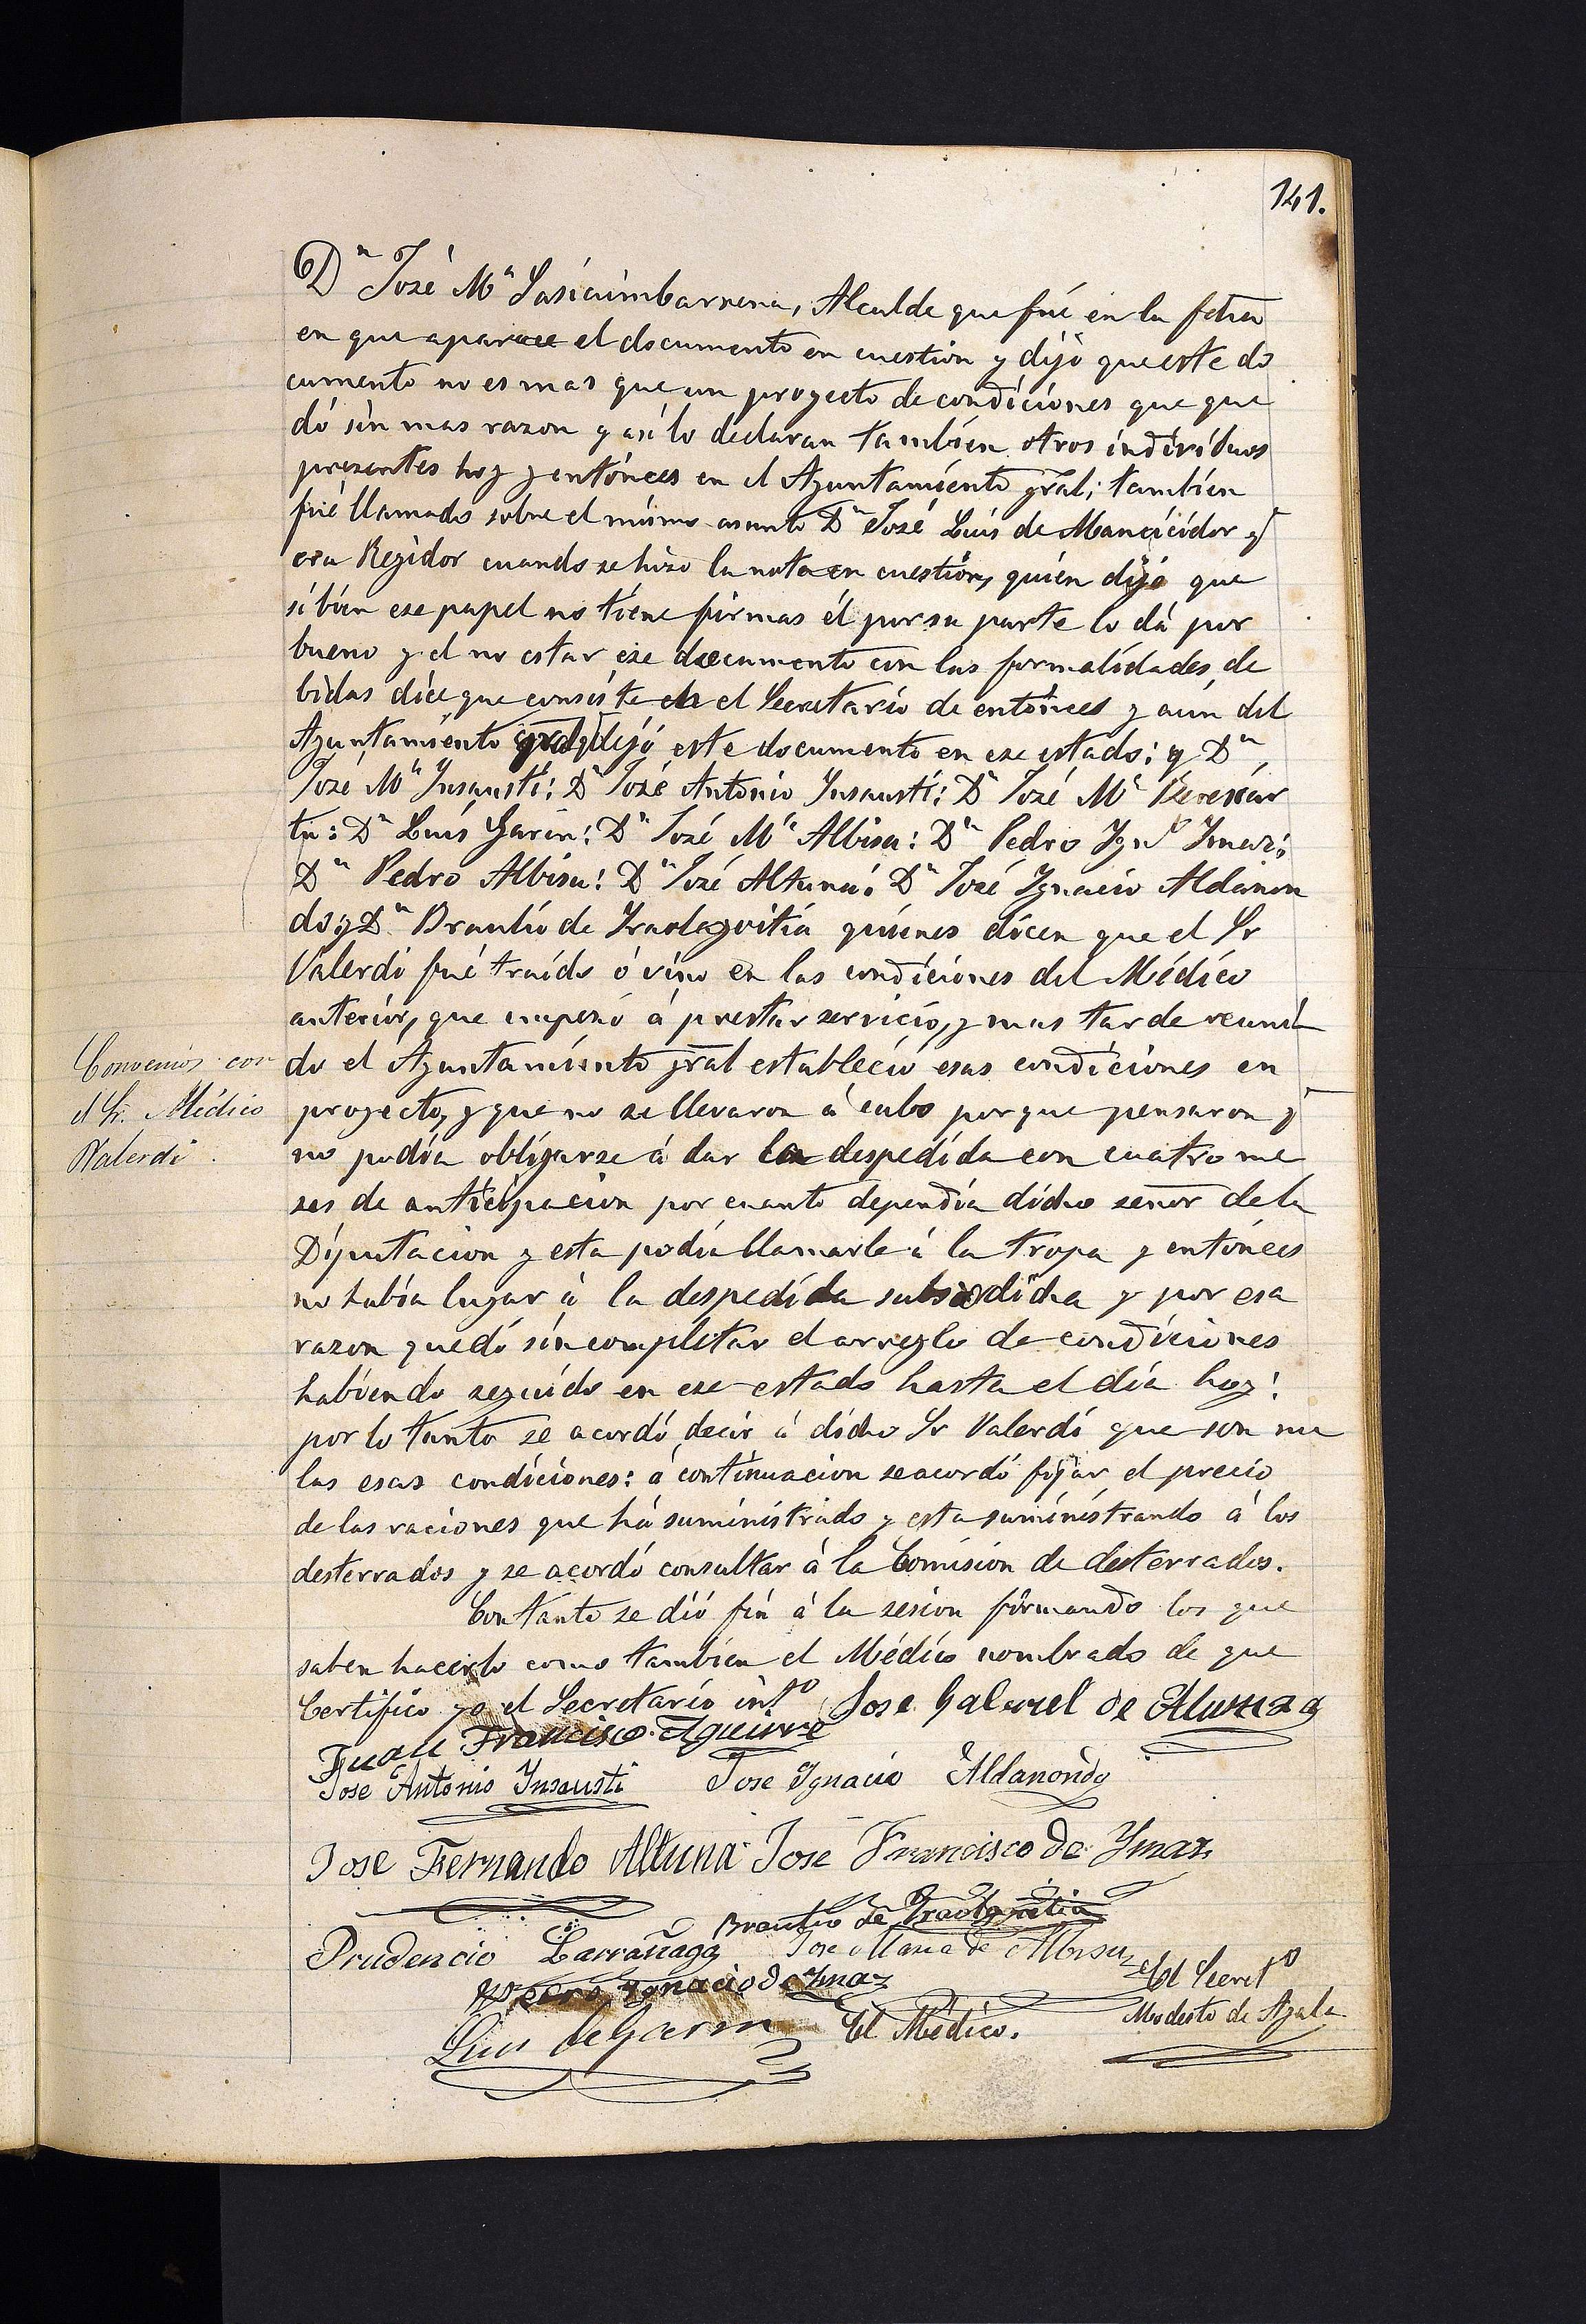 141.
Dⁿ José Mª Lasicuimbarrena, Alcalde que fué en la fetra
en que aparace el documento en cuestion y dijo que este do
cumento no es mas que un proyecto de condiciones que que
dó sin mas razon y asi lo declaran tambien otros individuos
presentes hoy y entónces en el Ayuntamiento gral; tambien
fué llamado sobre el mismo asunto Dⁿ José Luis de Mancicidor q̄
era Regidor cuando se hizo la nota en cuestion, quien dijo que
si bien ese papel no tiene firmas él por su parte lo dá por
bueno y el no estar ese documento con las formalidades de
bidas dice que consiste en el Secretario de entónces y aun del
Ayuntamiento gral q̄ dejó este documento en ese estado: y Dⁿ
José Mª Insausti: Dⁿ José Antonio Insausti: Dⁿ José Mª
tu: Dⁿ Luis Garin: Dⁿ José Mª Albisu: Dⁿ Pedro Ignº Imaz:
Dⁿ Pedro Albisu: Dⁿ José Altuna: Dⁿ José Ignacio Aldanon
do y Dⁿ Braulio de Iraolagoitia quienes dicen que el Sr
Valerdi fué traido ó vino en las condiciones del Médico
anterior, que empezó á prestar servicio, y mas tarde reuni
do el Ayuntamiento gral estableció esas condiciones en
proyecto, y que no se llevaron á cabo porque pensaron q̄
no podia obligarse á dar la despedida con cuatro me
ses de anticipacion por cuanto dependia dicho señor de la
Diputacion y esta podia llamarle á la tropa y entónces
no habia lugar á la despedida susodicha y por esa
razon quedó sin completar el arreglo de condiciones
habiendo seguido en ese estado hasta el dia hoy:
por lo tanto se acordó decir á dicho Sr Valerdi que son nu
las esas condiciones: á continuacion se acordó fijar el precio
de las raciones que há suministrado y esta suministrando á los
desterrados y se acordó consultar á la Comision de desterrados.
Con tanto se dió fin á la sesion firmando los que
saben hacerlo como tambien el Médico nombrado de que
Certifico yo el Secretario intº Jose Gabriel de
Convenios con
el Sr. Médico
Valerdi.
Juan Francisco Aguirre
Jose Antonio Insausti Jose Ignacio Aldanondo
Jose Fernando Altuna Jose Francisco de Ymaz
Braulio de Iraolagoitia
Prudencio Larrañaga Jose Maria de Albisu
El Secretº
Ignacio de Imaz
Modesto de Ayala
Luis de Garin El Médico.